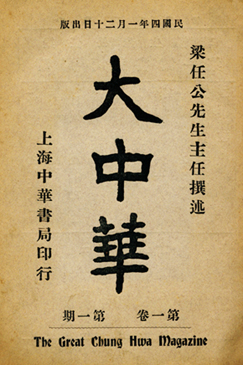 民國四年一月二十日出版
梁任公先生主任撰述
大中華
上海中華書局印行
第一卷 第一期
The Great Chung Hwa Magazine